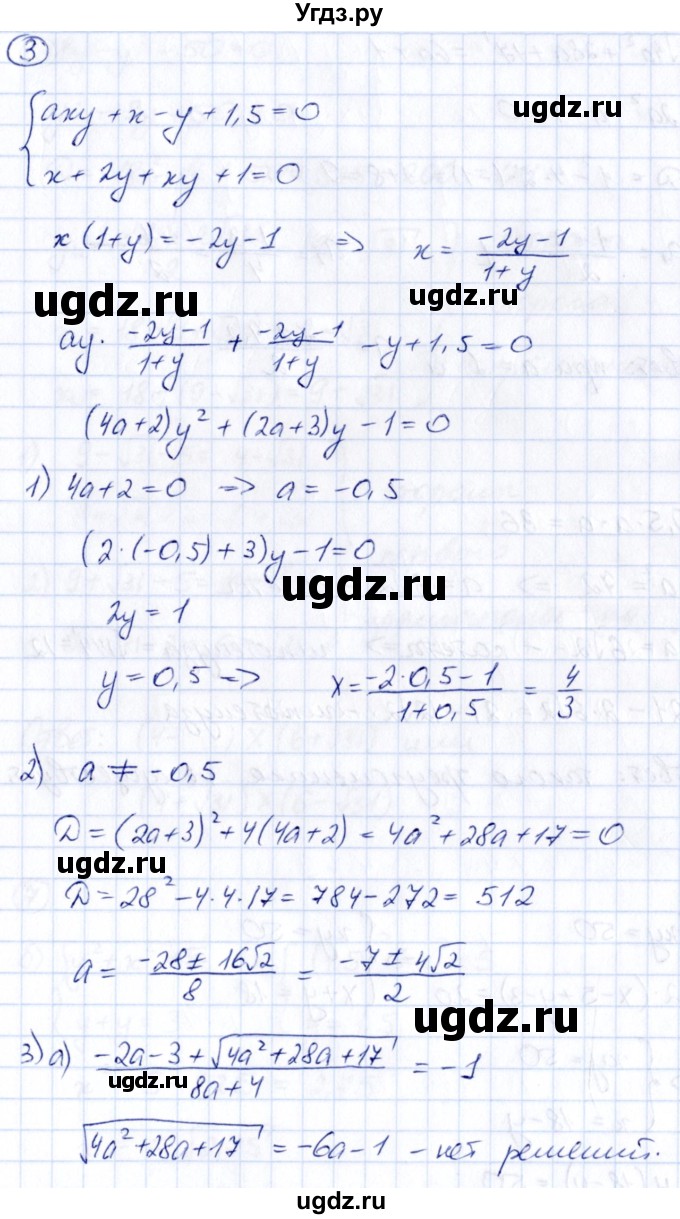 Угдз.ру
3
axy + x - y + 1,5 = 0
ugdz.ru
x + 2y + xy + 1 = 0
x (1+y) = -2y-1 => x = (-2y-1)/(1+y)
ugdz.ru
ugdz.ru
ay · (-2y-1)/(1+y) + (-2y-1)/(1+y) - y + 1,5 = 0
(4a+2)y² + (2a+3)y - 1 = 0
1) 4a+2 = 0 => a = -0,5
(2·(-0,5)+3)y - 1 = 0
ugdz.ru
2y = 1
y = 0,5 => x = (-2·0,5-1)/(1+0,5) = 4/3
ugdz.ru
2) a ≠ -0,5
D = (2a+3)² + 4(4a+2) = 4a² + 28a + 17 = 0
ugdz.ru
D = 28² - 4·4·17 = 784 - 272 = 512
a = (-28 ± 16√2)/8 = (-7 ± 4√2)/2
ugdz.ru
3) a) (-2a-3+√(4a²+28a+17))/(8a+4) = -1
ugdz.ru
√(4a²+28a+17) = -6a-1 - нет решений.
ugdz.ru